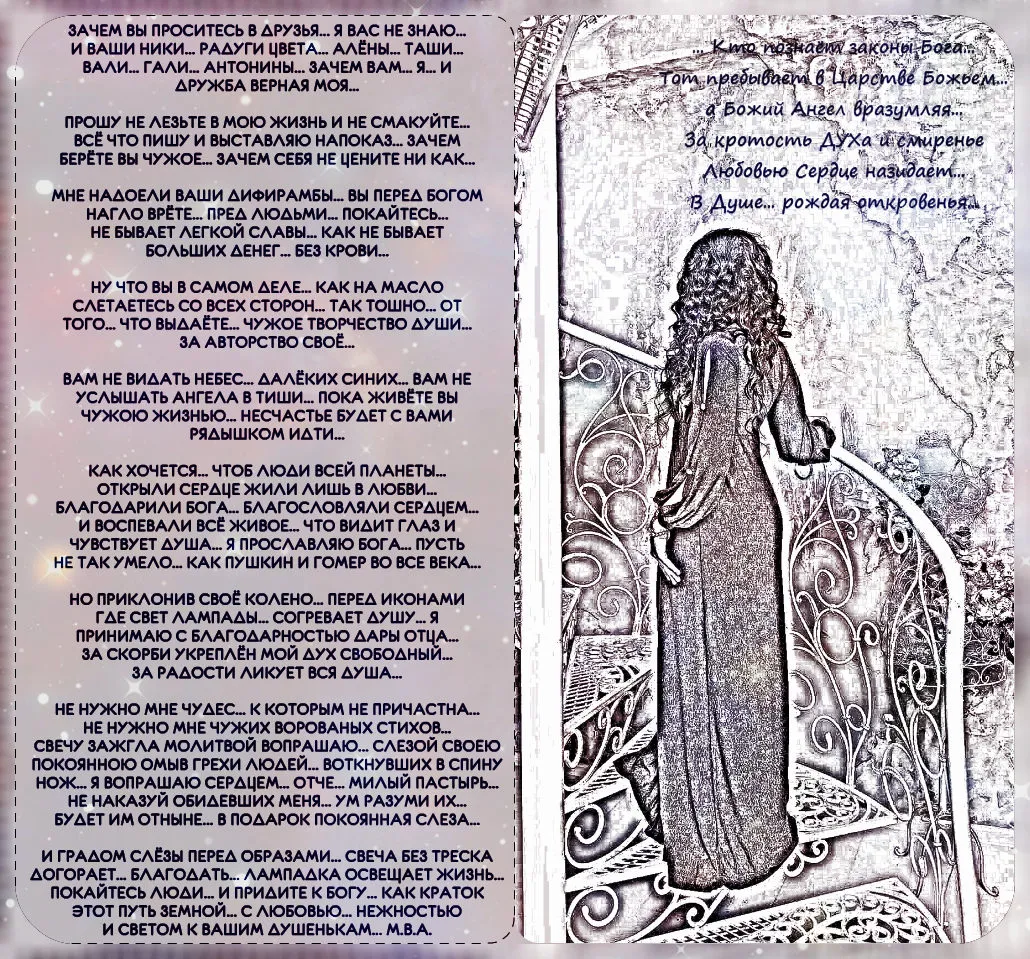 ЗАЧЕМ ВЫ ПРОСИТЕСЬ В ДРУЗЬЯ... Я ВАС НЕ ЗНАЮ...
И ВАШИ НИКИ... РАДУГИ ЦВЕТА... АЛЁНЫ... ТАШИ...
ВАЛИ... ГАЛИ... АНТОНИНЫ... ЗАЧЕМ ВАМ... Я... И
ДРУЖБА ВЕРНАЯ МОЯ...
ПРОШУ НЕ ЛЕЗЬТЕ В МОЮ ЖИЗНЬ И НЕ СМАКУЙТЕ...
ВСЁ ЧТО ПИШУ И ВЫСТАВЛЯЮ НАПОКАЗ... ЗАЧЕМ
БЕРЁТЕ ВЫ ЧУЖОЕ... ЗАЧЕМ СЕБЯ НЕ ЦЕНИТЕ НИ КАК...
МНЕ НАДОЕЛИ ВАШИ ДИФИРАМБЫ... ВЫ ПЕРЕД БОГОМ
НАГЛО ВРЁТЕ... ПРЕД ЛЮДЬМИ... ПОКАЙТЕСЬ...
НЕ БЫВАЕТ ЛЕГКОЙ СЛАВЫ... КАК НЕ БЫВАЕТ
БОЛЬШИХ ДЕНЕГ... БЕЗ КРОВИ...
НУ ЧТО ВЫ В САМОМ ДЕЛЕ... КАК НА МАСЛО
СЛЕТАЕТЕСЬ СО ВСЕХ СТОРОН... ТАК ТОШНО... ОТ
ТОГО... ЧТО ВЫДАЁТЕ... ЧУЖОЕ ТВОРЧЕСТВО ДУШИ...
ЗА АВТОРСТВО СВОЁ...
ВАМ НЕ ВИДАТЬ НЕБЕС... ДАЛЁКИХ СИНИХ... ВАМ НЕ
УСЛЫШАТЬ АНГЕЛА В ТИШИ... ПОКА ЖИВЁТЕ ВЫ
ЧУЖОЮ ЖИЗНЬЮ... НЕСЧАСТЬЕ БУДЕТ С ВАМИ
РЯДЫШКОМ ИДТИ...
КАК ХОЧЕТСЯ... ЧТОБ ЛЮДИ ВСЕЙ ПЛАНЕТЫ...
ОТКРЫЛИ СЕРДЦЕ ЖИЛИ ЛИШЬ В ЛЮБВИ...
БЛАГОДАРИЛИ БОГА... БЛАГОСЛОВЛЯЛИ СЕРДЦЕМ...
И ВОСПЕВАЛИ ВСЁ ЖИВОЕ... ЧТО ВИДИТ ГЛАЗ И
ЧУВСТВУЕТ ДУША... Я ПРОСЛАВЛЯЮ БОГА... ПУСТЬ
НЕ ТАК УМЕЛО... КАК ПУШКИН И ГОМЕР ВО ВСЕ ВЕКА...
НО ПРИКЛОНИВ СВОЁ КОЛЕНО... ПЕРЕД ИКОНАМИ
ГДЕ СВЕТ ЛАМПАДЫ... СОГРЕВАЕТ ДУШУ... Я
ПРИНИМАЮ С БЛАГОДАРНОСТЬЮ ДАРЫ ОТЦА...
ЗА СКОРБИ УКРЕПЛЁН МОЙ ДУХ СВОБОДНЫЙ...
ЗА РАДОСТИ ЛИКУЕТ ВСЯ ДУША...
НЕ НУЖНО МНЕ ЧУДЕС... К КОТОРЫМ НЕ ПРИЧАСТНА...
НЕ НУЖНО МНЕ ЧУЖИХ ВОРОВАНЫХ СТИХОВ...
СВЕЧУ ЗАЖГЛА МОЛИТВОЙ ВОПРАШАЮ... СЛЕЗОЙ СВОЕЮ
ПОКОЯННОЮ ОМЫВ ГРЕХИ ЛЮДЕЙ... ВОТКНУВШИХ В СПИНУ
НОЖ... Я ВОПРАШАЮ СЕРДЦЕМ... ОТЧЕ... МИЛЫЙ ПАСТЫРЬ...
НЕ НАКАЗУЙ ОБИДЕВШИХ МЕНЯ... УМ РАЗУМИ ИХ...
БУДЕТ ИМ ОТНЫНЕ... В ПОДАРОК ПОКОЯННАЯ СЛЕЗА...
И ГРАДОМ СЛЁЗЫ ПЕРЕД ОБРАЗАМИ... СВЕЧА БЕЗ ТРЕСКА
ДОГОРАЕТ... БЛАГОДАТЬ... ЛАМПАДКА ОСВЕЩАЕТ ЖИЗНЬ...
ПОКАЙТЕСЬ ЛЮДИ... И ПРИДИТЕ К БОГУ... КАК КРАТОК
ЭТОТ ПУТЬ ЗЕМНОЙ... С ЛЮБОВЬЮ... НЕЖНОСТЬЮ
И СВЕТОМ К ВАШИМ ДУШЕНЬКАМ... М.В.А.
... Кто познает законы Бога...
Тот пребывает в Царстве Божьем...
а Божий Ангел вразумляя...
За кротость ДУХа и смиренье
Любовью Сердце назидает...
В Душе... рождая откровенья...